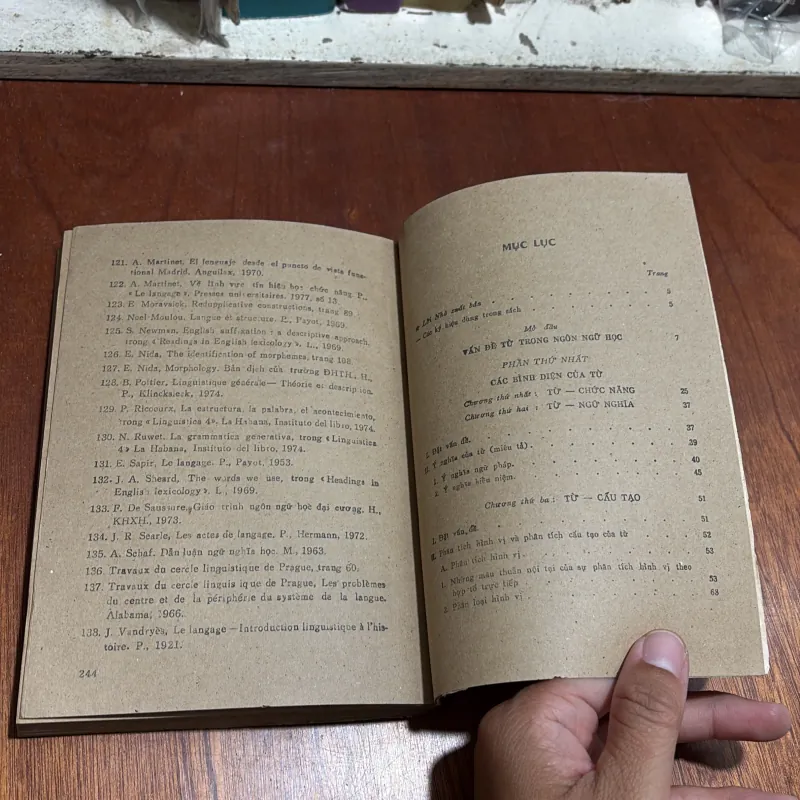 121. A. Martinet. El lenguaje desde el puneto de viste func-
tional Madrid. Anguilax, 1970.
122. A. Martinet, Về lĩnh vực tín hiệu học chức năng. P.,
« Le langage ». Presses universitaires. 1977, số 13.
123. E. Moravsick. Reduplicative constructions, trang 89.
124. Noel-Moulou. Langue et structure. P., Payot, 1969.
125. S. Newman. English suffixation : a descriptive approach,
trong « Readings in English lexicology ». L., 1969.
126. E. Nida, The identification of morphemes, trang 198.
127. E. Nida, Morphology. Bản dịch của trường ĐHTH., H.,
128. B. Pottier, Linguistique générale — Théorie et descrip-
tion. P., Klincksieck, 1974.
129. P. Ricoeurx, La estructura, la palabra, el acontecimento,
trong « Linguistica 4». La Habana, Instituto del libro, 1974.
130. N. Ruwet. La grammatica generativa, trong «Linguistica
4» La Habana, Instituto del libro, 1974.
131. E. Sapir, Le langage. P., Payot. 1953.
132. J. A. Sheard, The words we use, trong «Headings in
English lexicology». L., 1969.
133. F. De Saussure, Giáo trình ngôn ngữ học đại cương, H.,
KHXH., 1973.
134. J. R. Searle, Les actes de langage. P., Hermann, 1972.
135. A. Schaf. Dẫn luận ngữ nghĩa học. M., 1963.
136. Travaux du cercle linguistique de Prague, trang 60.
137. Travaux du cercle linguis ique de Prague, Les problèmes
du centre et de la périphérie du système de la langue.
Alabama, 1966.
138. J. Vandryès, Le langage — Introduction linguistique à l'his-
toire. P., 1921.
244
MỤC LỤC
Trang
Lời Nhà xuất bản 5
— Các ký hiệu dùng trong sách 5
Mở đầu
VẤN ĐỀ TỪ TRONG NGÔN NGỮ HỌC 7
PHẦN THỨ NHẤT
CÁC BÌNH DIỆN CỦA TỪ
Chương thứ nhất : TỪ — CHỨC NĂNG 25
Chương thứ hai : TỪ — NGỮ NGHĨA 37
I. Đặt vấn đề. 37
II. Ý nghĩa của từ (miêu tả). 39
1. Ý nghĩa ngữ pháp. 40
2. Ý nghĩa biểu niệm. 45
Chương thứ ba : TỪ — CẤU TẠO 51
I. Đặt vấn đề. 51
II. Phân tích hình vị và phân tích cấu tạo của từ 52
A. Phân tích hình vị 53
1. Những mâu thuẫn nội tại của sự phân tích hình vị theo
hợp tố trực tiếp 53
2. Phân loại hình vị 68